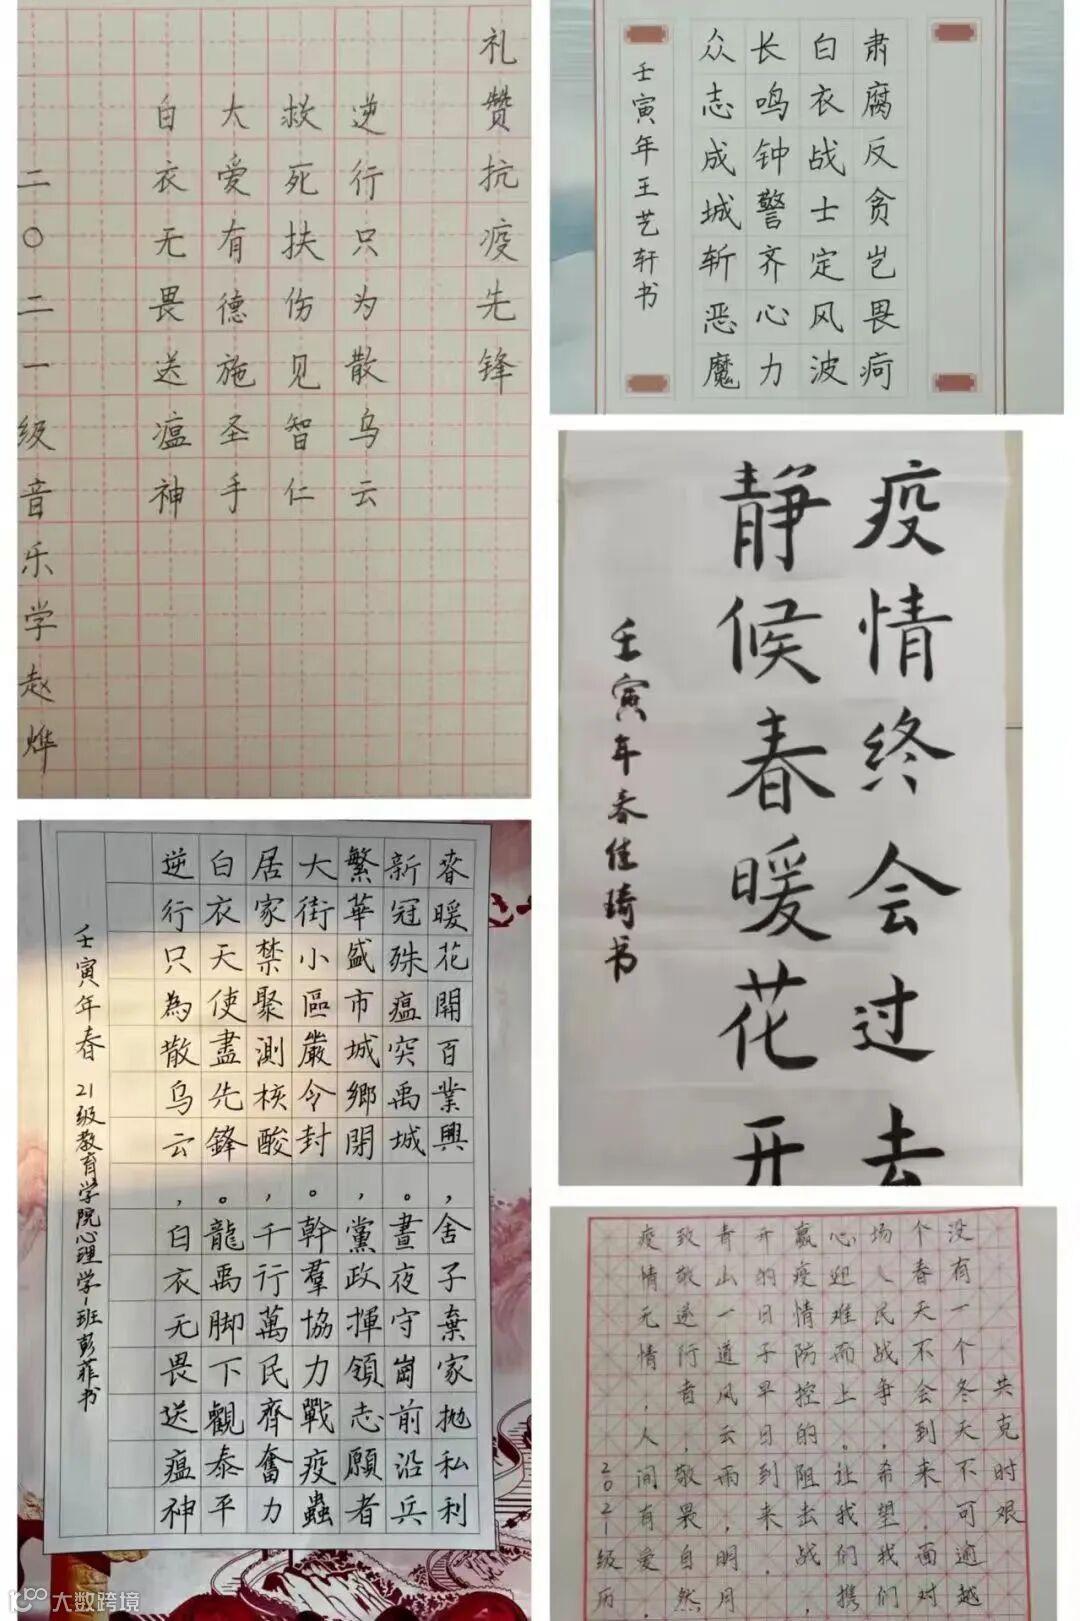 礼赞抗疫先锋
逆行只为散乌云
救死扶伤见智仁
大爱有德施圣手
白衣无畏送瘟神
二〇二一级音乐学赵烨
肃腐反贪岂畏疴
白衣战士定风波
长鸣钟警齐心力
众志成城斩恶魔
壬寅年王艺轩书
疫情终会过去
静候春暖花开
壬寅年春佳琦书
春暖花開百業興，舍子棄家抛私利
新冠殊瘟突禹城。晝夜守崗前沿兵
繁華盛市城鄉閉，黨政揮領志願者
大街小區嚴令封。幹羣協力戰疫蟲
居家禁聚測核酸，千行萬民齊奮力
白衣天使盡先鋒。龍禹脚下觀泰平
逆行只為散乌云，白衣无畏送瘟神
壬寅年春 21级教育学院心理学一班彭菲书
共克时艰
没有一个冬天不可逾越
个春天不会到来，面对
场人民战争，希望我们
心迎难而上。让我们携
赢疫情防控的阻去战
开的日子早日到来，
青山一道风云雨，明月
致敬逆行者，敬畏自然
疫情无情，人间有爱，
2021级历
大数跨境